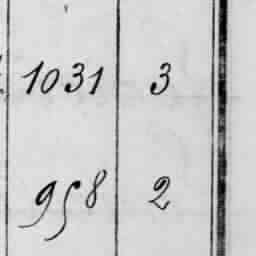 1031 3
958 2